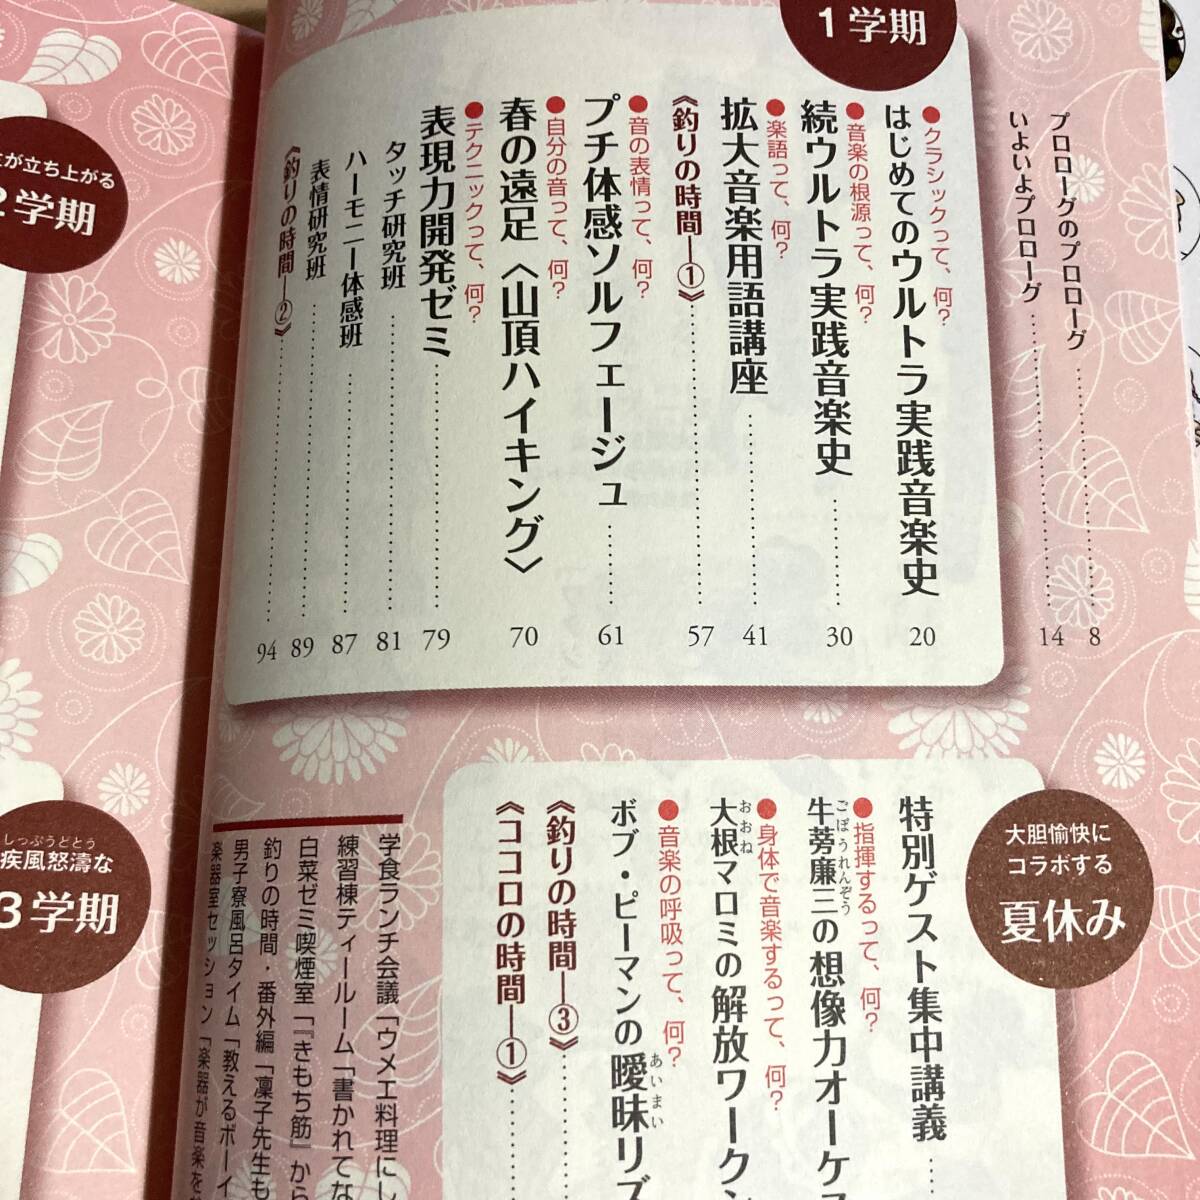 プロローグのプロローグ 8
いよいよプロローグ 14
1学期
●クラシックって、何?
はじめてのウルトラ実践音楽史 20
●音楽の根源って、何?
続ウルトラ実践音楽史 30
●楽語って、何?
拡大音楽用語講座 41
《釣りの時間―①》 57
●音の表情って、何?
プチ体感ソルフェージュ 61
●自分の音って、何?
春の遠足〈山頂ハイキング〉 70
●テクニックって、何?
表現力開発ゼミ 79
タッチ研究班 81
ハーモニー体感班 87
表情研究班 89
《釣りの時間―②》 94
大胆愉快に
コラボする
夏休み
特別ゲスト集中講義
●指揮するって、何?
牛蒡廉三の想像力オーケス
ごぼうれんぞう
●身体で音楽するって、何?
大根マロミの解放ワーク
おおね
●音楽の呼吸って、何?
ボブ・ピーマンの曖昧リズ
あいまい
《釣りの時間―③》
《ココロの時間―①》
学食ランチ会議「ウメエ料理にし
練習棟ティールーム「書かれてな
白菜ゼミ喫煙室「『きもち筋』から
釣りの時間・番外編「凜子先生も
男子寮風呂タイム「教えるボーイ
楽器室セッション「楽器が音楽を
が立ち上がる
2学期
しっぷうどとう
疾風怒濤な
3学期